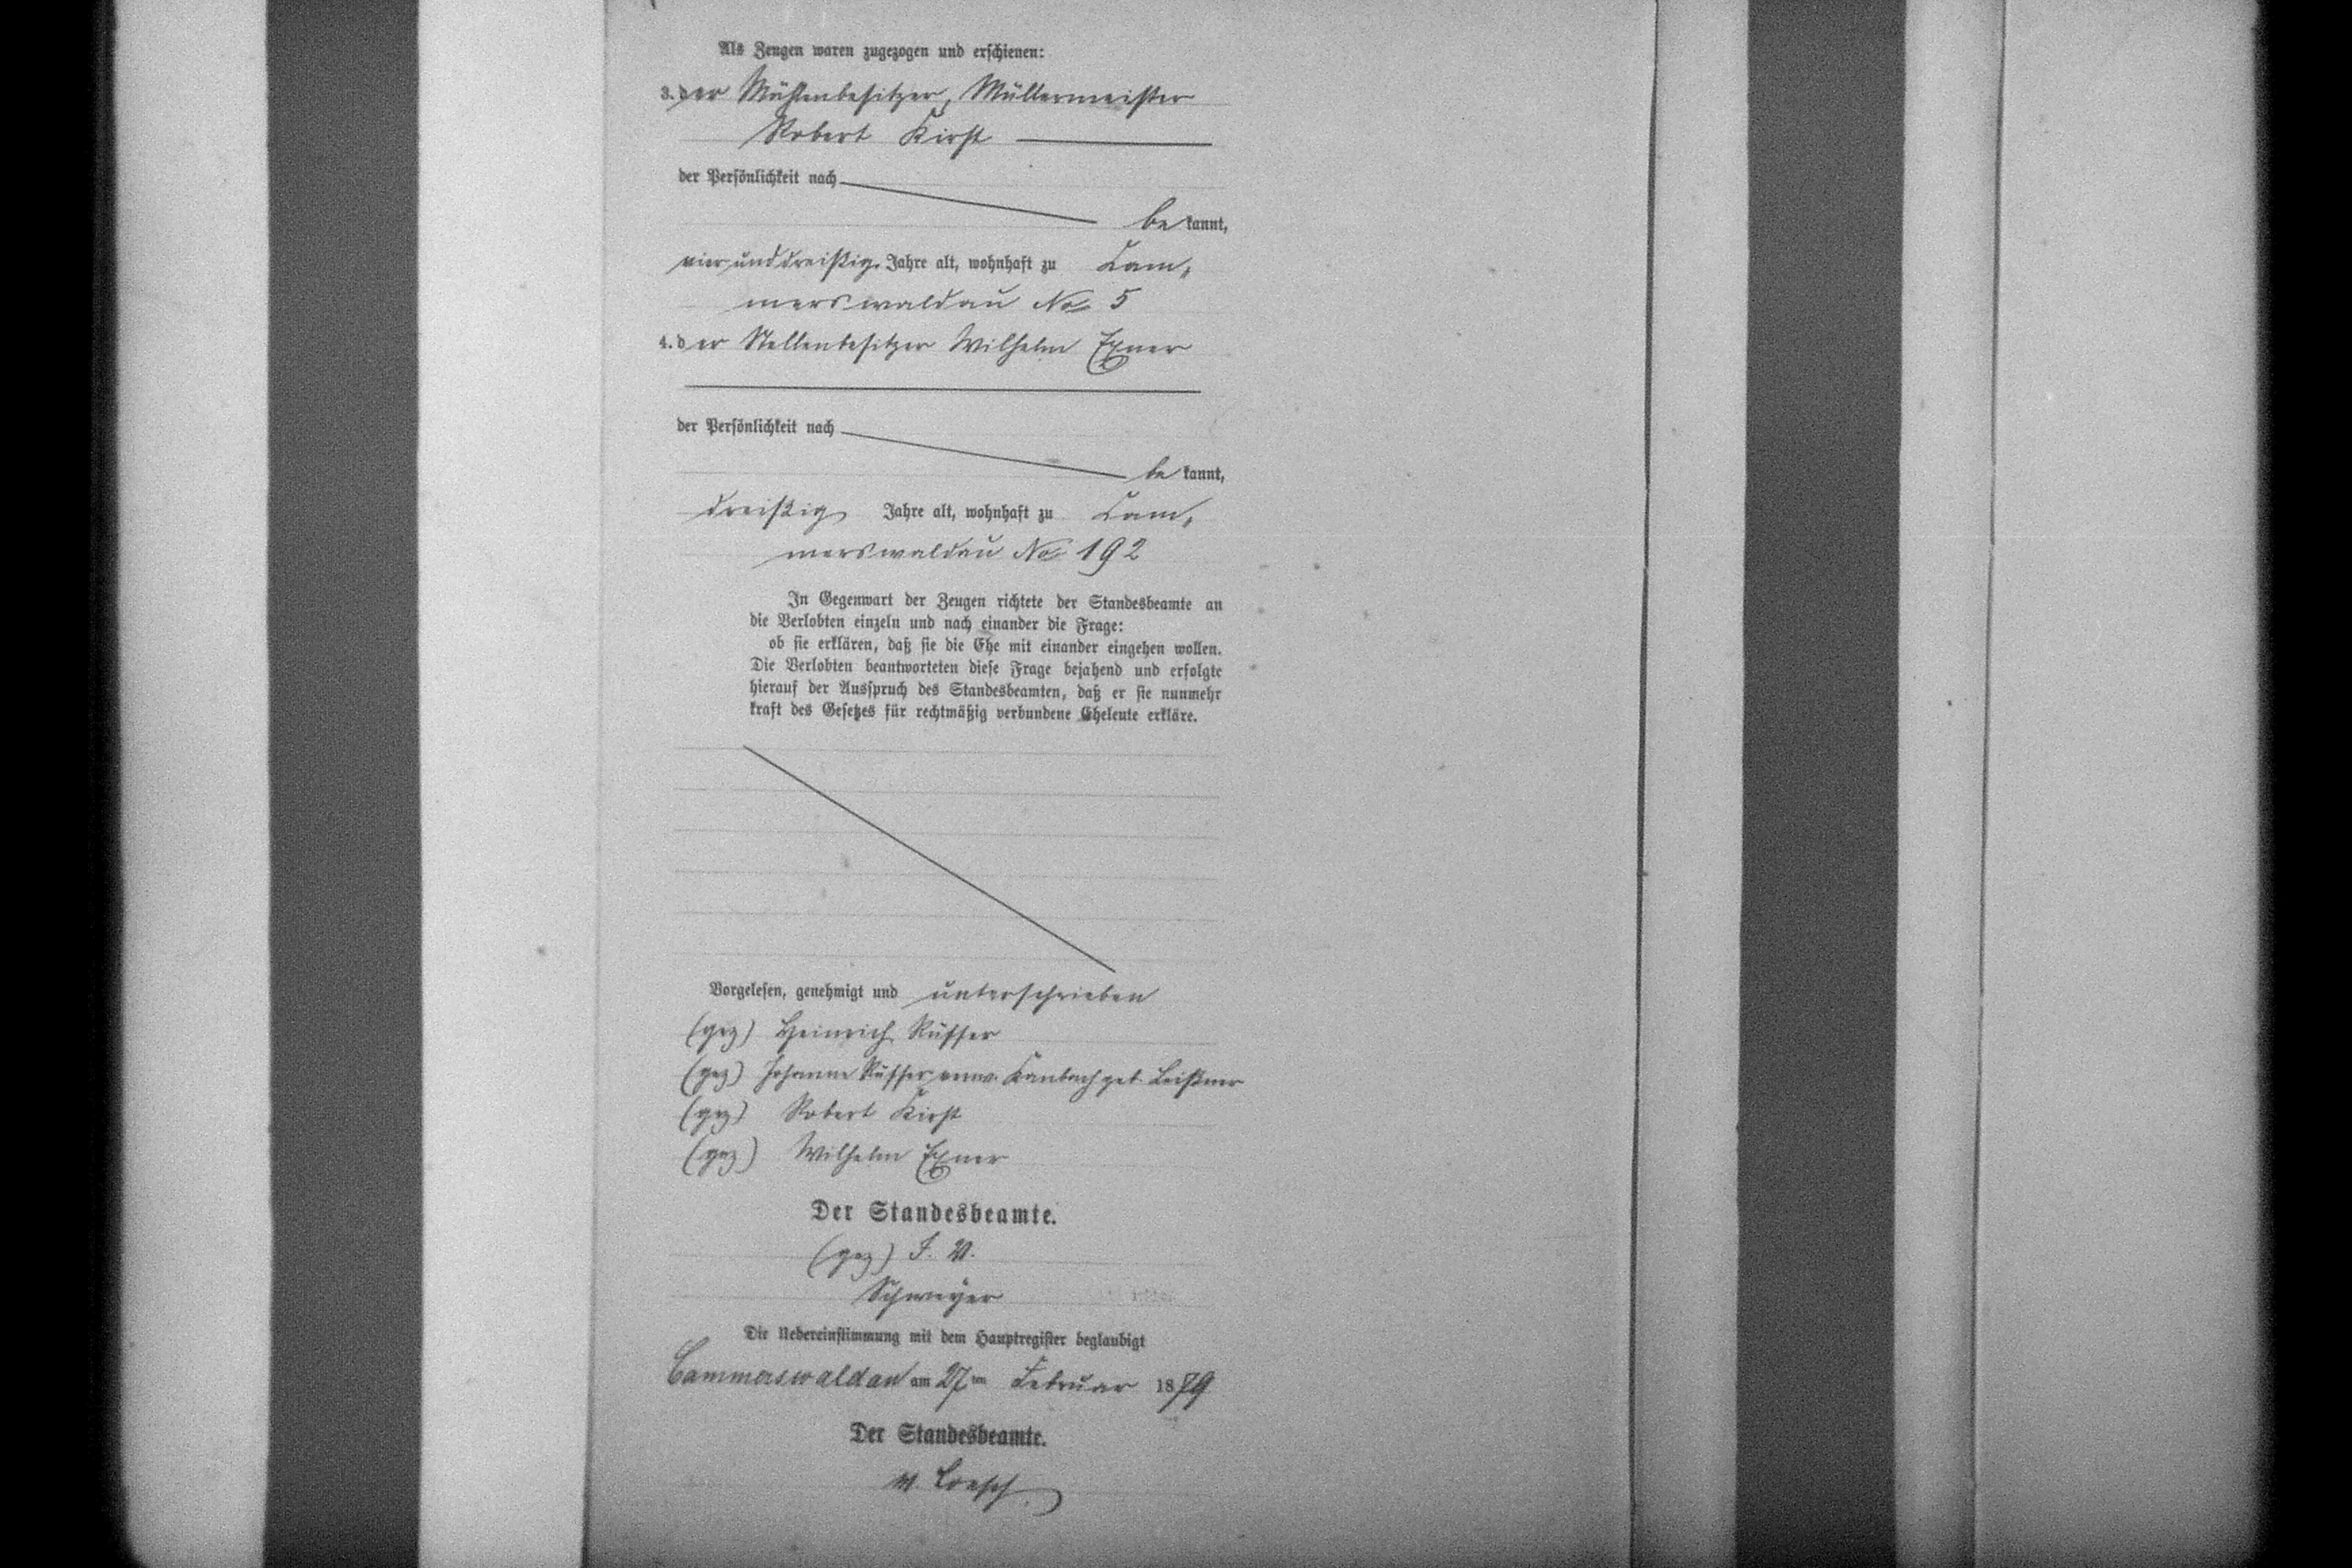 Als Zeugen waren zugezogen und erschienen:
3. der Mühlenbesitzer, Müllermeister
Robert Kirst
der Persönlichkeit nach
be kannt,
vier und dreißig Jahre alt, wohnhaft zu Kam,
merswaldau No 5
4. der Stellenbesitzer Wilhelm Exner
der Persönlichkeit nach
be kannt,
dreißig Jahre alt, wohnhaft zu Kam,
merswaldau No 192
In Gegenwart der Zeugen richtete der Standesbeamte an
die Verlobten einzeln und nach einander die Frage:
ob sie erklären, daß sie die Ehe mit einander eingehen wollen.
Die Verlobten beantworteten diese Frage bejahend und erfolgte
hierauf der Ausspruch des Standesbeamten, daß er sie nunmehr
kraft des Gesetzes für rechtmäßig verbundene Eheleute erkläre.
Vorgelesen, genehmigt und unterschrieben
(gez) Heinrich Rüffer
(gez) Johanne Rüffer verw. Kambach geb. Leißner
(gez) Robert Kirst
(gez) Wilhelm Exner
Der Standesbeamte.
(gez) I. V.
Schweyer
Die Uebereinstimmung mit dem Hauptregister beglaubigt
Cammerswaldau am 27 ten Februar 1879
Der Standesbeamte.
v. Loesch